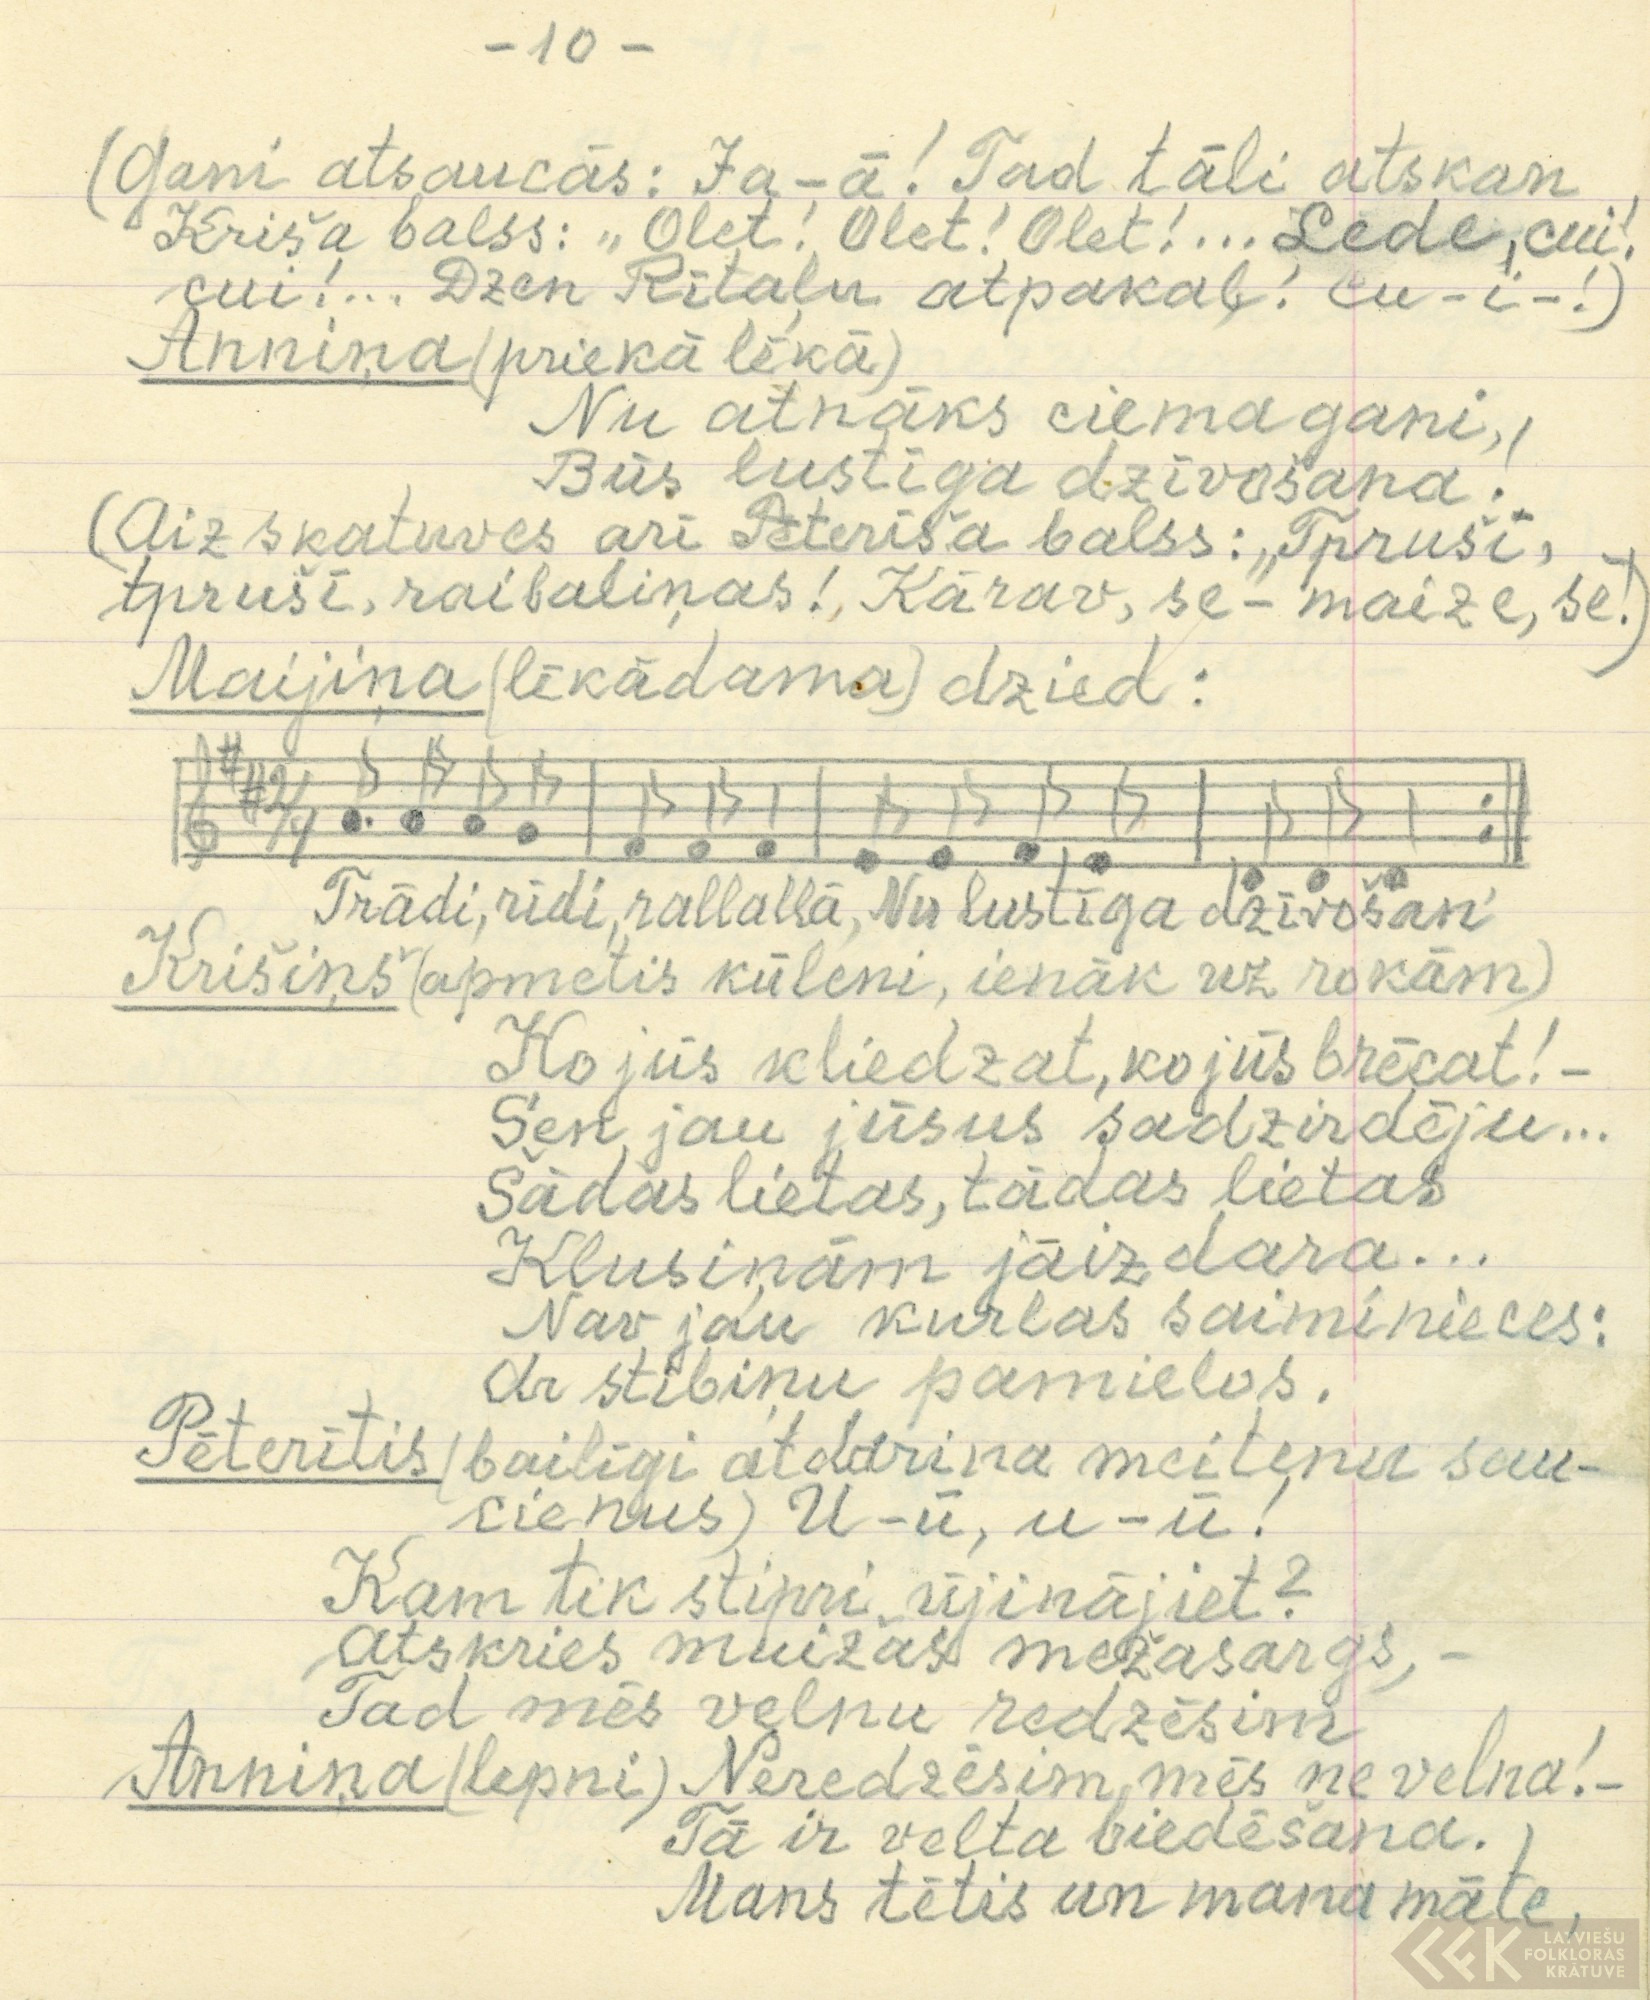 - 10 -
(Gani atsaucās: Ja-ā! Tad tāli atskan
Kriša balss: „Olet! Olet! Olet!... Lede, cui!
cui!... Dzen Rītaļu atpakaļ! Cu-i-!)
Anniņa (priekā lēkā)
Nu atnāks ciema gani,
Būs lustīga dzīvošana!
(Aiz skatuves arī Pēterīša balss: „Tpruši,
tpruši, raibaliņas!„ Kārav, se - maize, se!)
Maijiņa (lēkādama) dzied:
2/4
Trādi, rīdi, rallallā, Nu lustīga dzīvošan'
Krišiņš (apmetis kūleni, ienāk uz rokām)
Ko jūs kliedzat, ko jūs brēcat! -
Sen jau jūsus sadzirdēju...
Šādas lietas, tādas lietas
Klusiņām jāizdara...
Nav jau kurlas saiminieces:
Ar stibiņu pamielos.
Pēterītis (bailīgi atdarina meiteņu sau-
cienus) U-ū, u-ū!
Kam tik stipri ūjinājiet?
Atskries muižas mežasargs, -
Tad mēs velnu redzēsim
Anniņa (lepni) Neredzēsim mēs ne velna! -
Tā ir velta biedēšana.
Mans tētis un mana māte,
LATVIEŠU
FOLKLORAS
KRĀTUVE